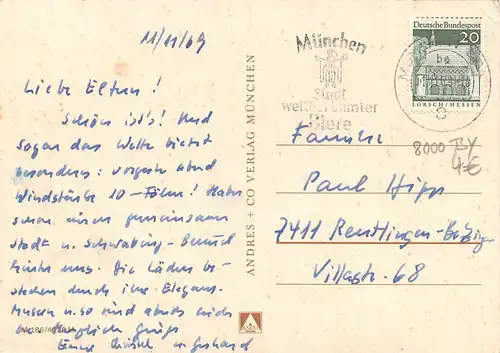 11/11/69
Liebe Eltern!
Schön ist's! Und
sogar das Wetter bietet
besonderes: vorgestern abend
Windstärke 10 - Föhn! Haben
schon einen gemeinsamen
Stadt u. Schwabing-Bummel
hinter uns. Die Läden be-
stechen durch ihre Eleganz.
Museen u. so sind abends nicht
Grüße
Eure u. Gerhard
ANDRES + CO VERLAG MÜNCHEN
München
Stadt
weltberühmter
Biere
Deutsche Bundespost
20
LORSCH/HESSEN
8
8000
4€
Familie
Paul Hipp
7411 Reutlingen-
Villastr. 68